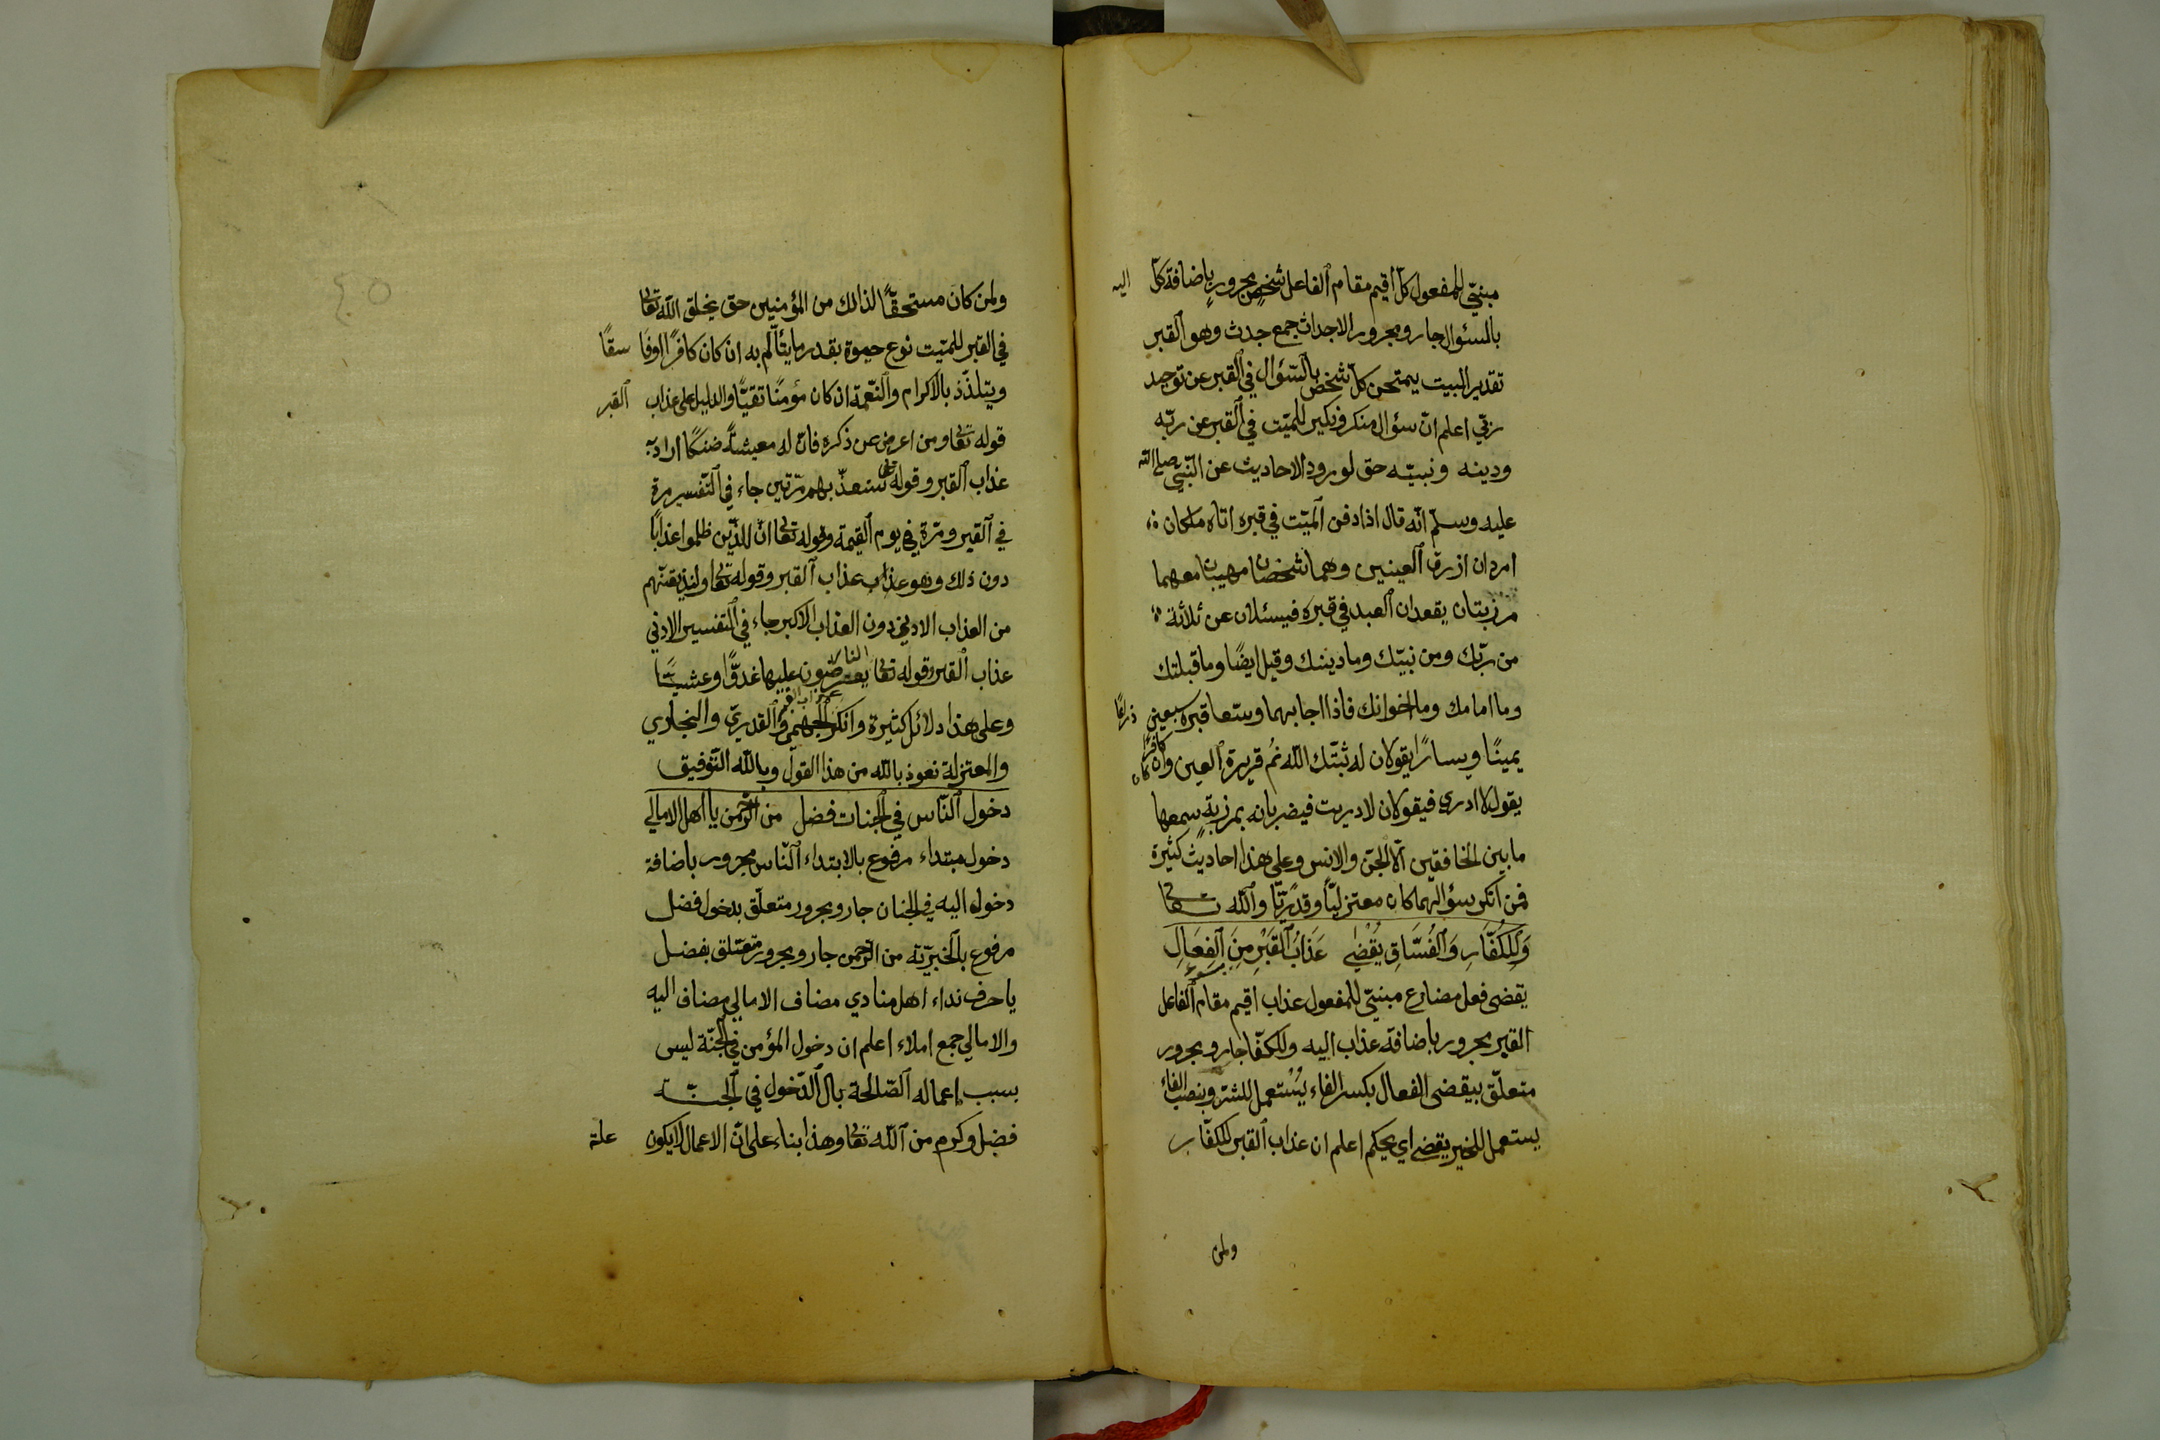 مبنيّ للمفعول كلّ اقيم مقام الفاعل شخصٍ مجرور باضافة كلّ اليه
بالسئوال جار ومجرور الاجداث جمع جدث وهو القبر
تقدير البيت يمتحن كلّ شخص بالسّؤال في القبر عن توحيد
ربّي اعلم انّ سؤال منكر ونكير للميّت في القبر عن ربّه
ودينه ونبيّه حق لورود الاحاديث عن النّبيّ صلى الله
عليه وسلم انّه قال اذا دفن الميّت في قبره اتاه ملكان
امردان ازرق العينين وهما شخصان مهيبان معهما
مرزبتان يقعدان العبد في قبره فيسئلان عن ثلاثة
من ربّك ومن نبيّك وما دينك وقيل ايضًا وما قبلتك
وما امامك وما اخوانك فاذا اجابهما وسّعا قبره سبعين ذراعًا
يمينًا ويسارًا يقولان له ثبّتك الله نم قريرة العين وان كان كافرًا
يقول لا ادري فيقولان لا دريت فيضربانه بمرزبة سمعها
ما بين الخافقين الّا الجنّ والانس وعلى هذا احاديث كثيرة
فمن انكر سؤالهما كان معتزليًّا وقدريًّا والله تعالى
وَلِلْكُفّارِ وَالْفُسّاقِ يُقْضٰى عَذَابُ الْقَبْرِ مِنَ الْفِعَالِ
يقضى فعل مضارع مبنيّ للمفعول عذاب اقيم مقام الفاعل
القبر مجرور باضافة عذاب اليه وللكفّا جار ومجرور
متعلّق بيقضى الفعال بكسر الفاء يُسْتعمل للشرّ وبنصب الفاء
يستعمل للخير يقضى اي يحكم اعلم ان عذاب القبر للكفّار
ولمن
ولمن كان مستحقًّا لذالك من المؤمنين حق يخلق الله تعا
في القبر للميّت نوع حيوة بقدر ما يتألّم به ان كان كافرًا اوفا سقًا
ويتلذّذ بالاكرام والنّعمة ان كان مؤمنًا تقيًّا والدليل على عذاب القبر
قوله تعا ومن اعرض عن ذكره فانّ له معيشة ضنكًا اراد به
عذاب القبر وقوله تعا سنعذّبهم مرّتين جاء في التّفسير مرة
في القبر ومرّة في يوم القيمة وقوله تعا انّ للذّين ظلموا عذابًا
دون ذلك وهو عذاب عذاب القبر وقوله تعا ولنذيقنّهم
من العذاب الادنى دون العذاب الاكبر جاء في التّفسير الادنى
عذاب القبر وقوله تعا النار يعرضون عليها غدوًّا وعشيًّا
وعلى هذا دلائل كثيرة وانكر عذاب القبر الجهميّ والقدريّ والنجاري
والمعتزلة نعوذ بالله من هذا القول وبالله التّوفيق
دخول النّاس في الجنات فضل من الرّحمن يا اهل الامالي
دخول مبتداء مرفوع بالابتداء النّاس مجرور باضافة
دخول اليه في الجنان جار ومجرور متعلّق بدخول فضل
مرفوع بالخبريّة من الرّحمن جار ومجرور متعلّق بفضل
يا حرف نداء اهل منادي مضاف الامالي مضاف اليه
والامالي جمع املاء اعلم ان دخول المؤمن في الجنّة ليس
بسبب اعماله الصّالحة بال الدّخول في الجنّة
فضل وكرم من الله تعا وهذا بناء على انّ الاعمال لايكون علة